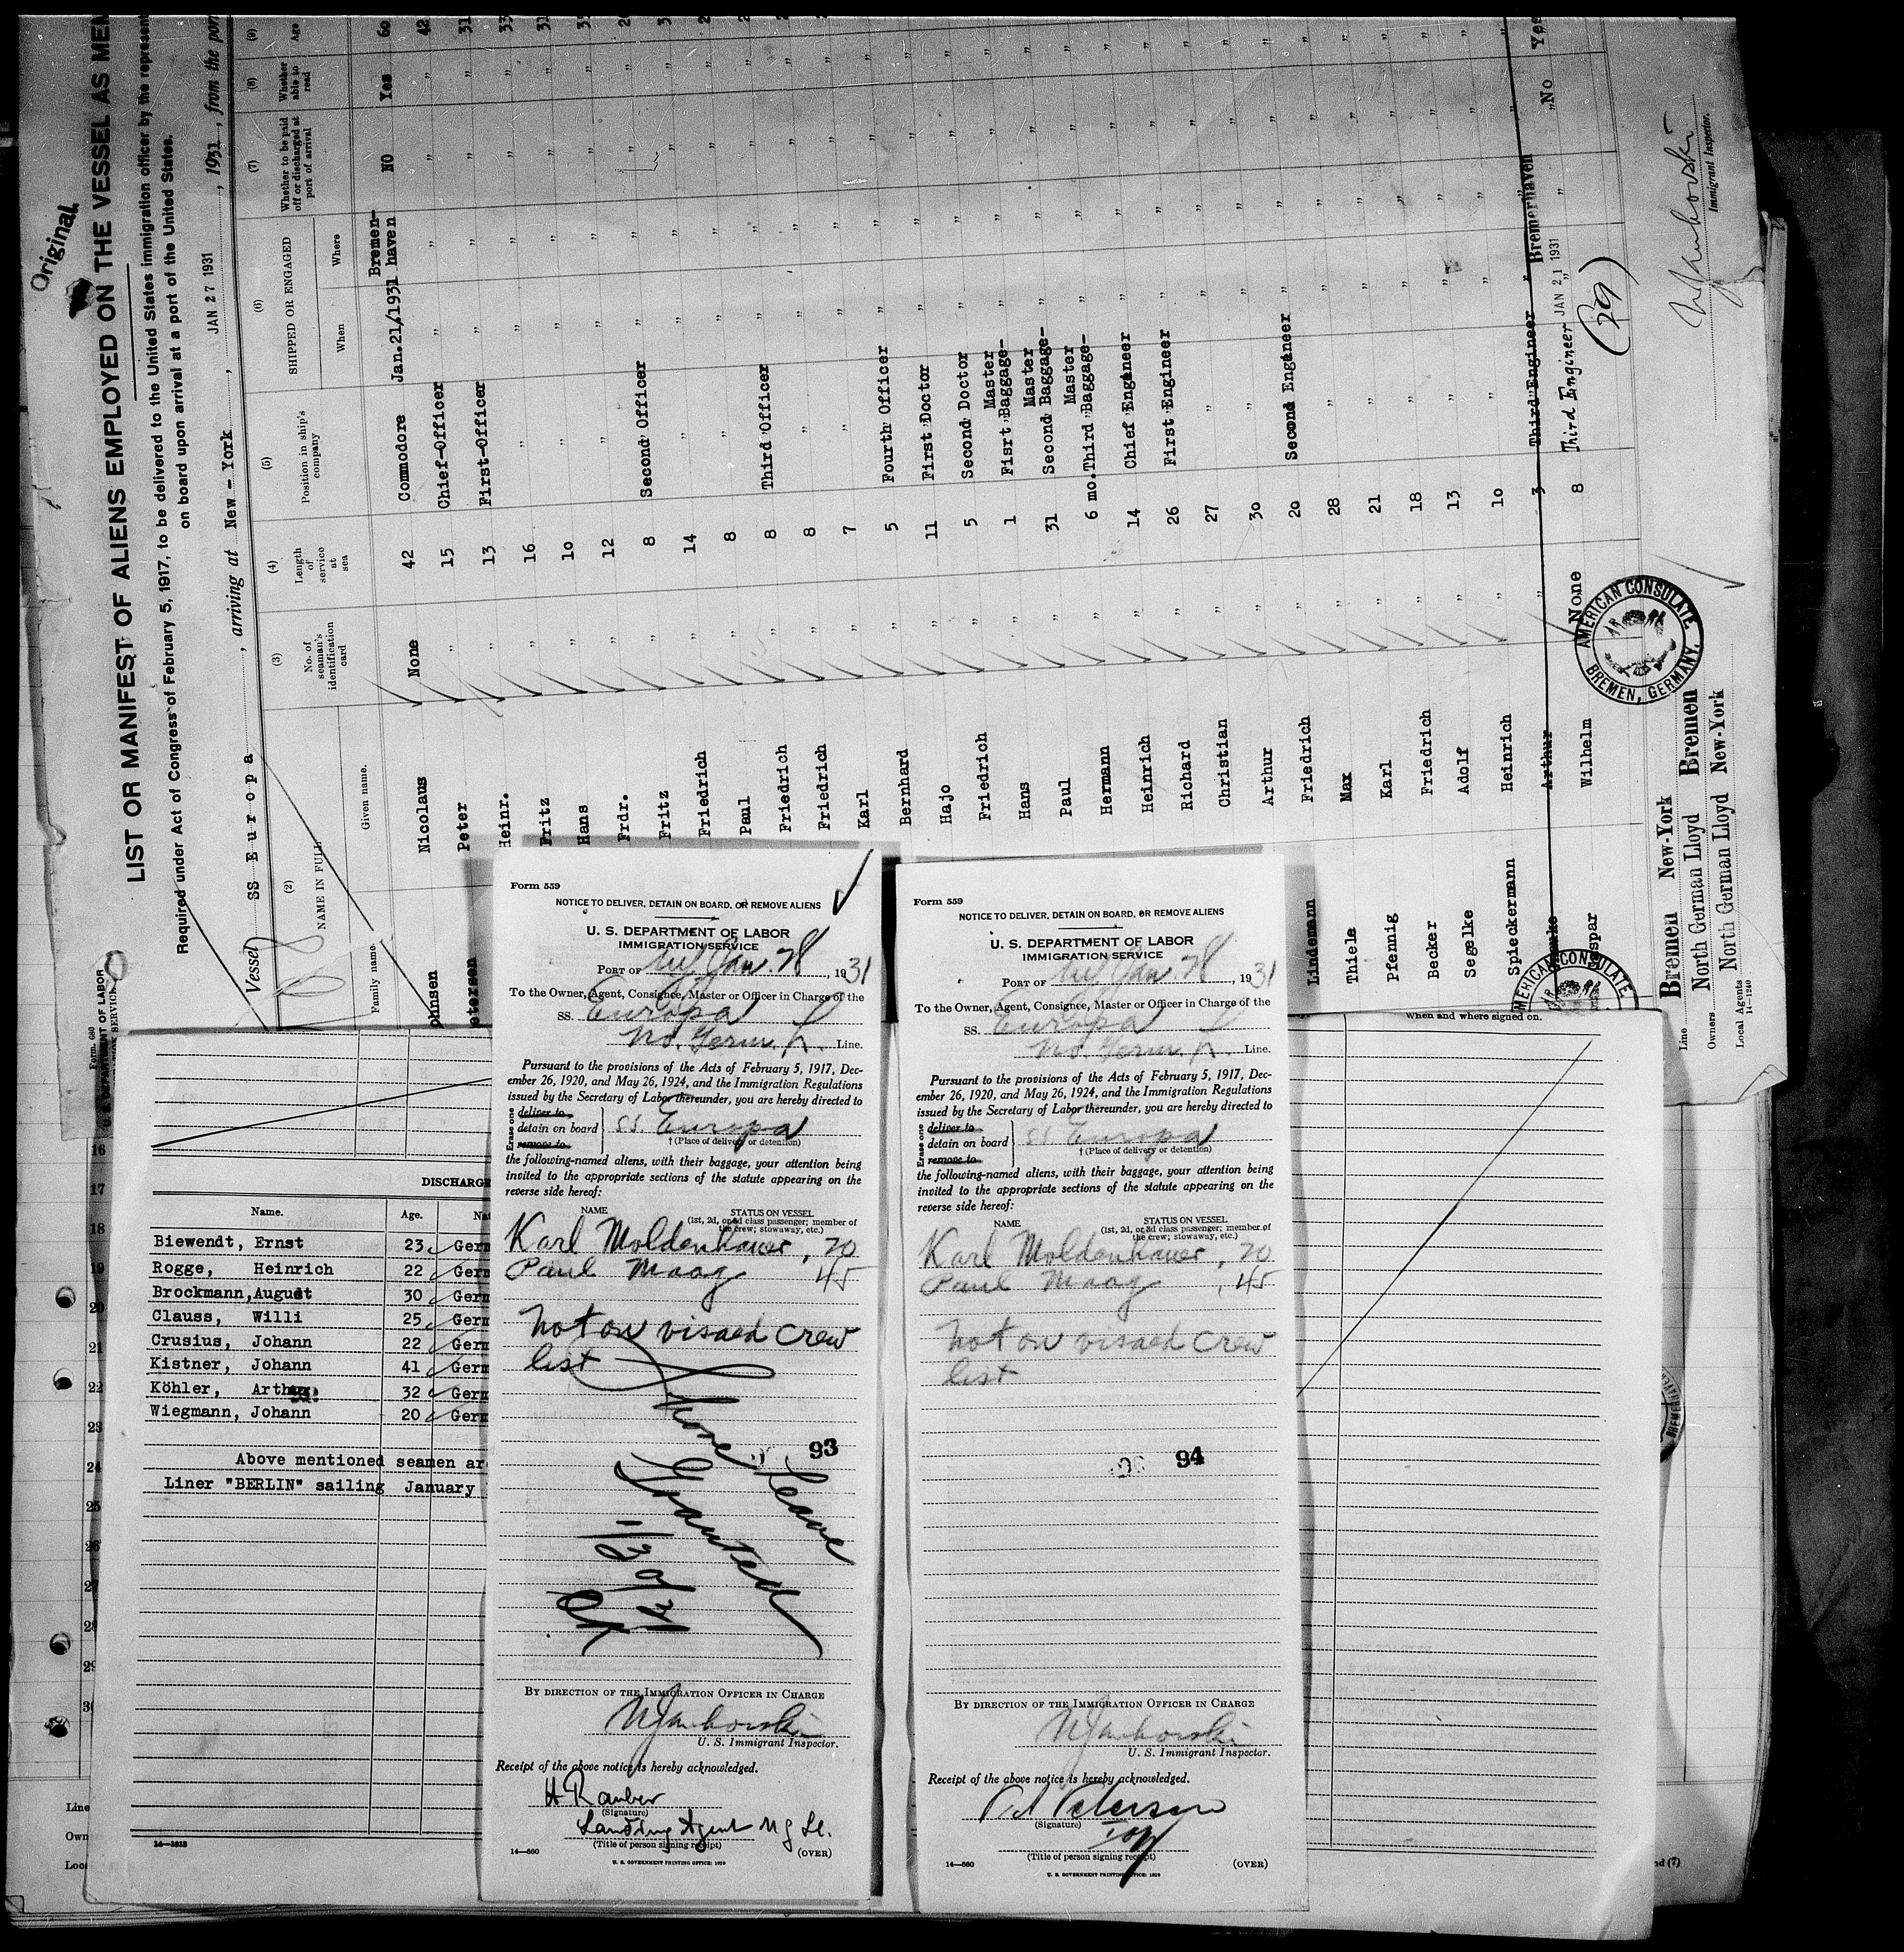 Original
LIST OR MANIFEST OF ALIENS EMPLOYED ON THE VESSEL AS MEM
Required under Act of Congress of February 5, 1917, to be delivered to the United States immigration officer by the represent
on board upon arrival at a port of the United States.
Vessel SS Europa, arriving at New-York, JAN 27 1931, 1931, from the por
Form 680
U. S. DEPARTMENT OF LABOR
(2) (3) (4) (5) (6) (7) (8) (9)
NAME IN FULL
Family name. Given name.
No. of seaman's identification card
Length of service at sea
Position in ship's company
SHIPPED OR ENGAGED
When Where
Whether to be paid off or discharged at port of arrival
Whether able to read
Age
ohnsen Nicolaus None 42 Commodore Jan.21/1931 Bremen-haven NO Yes 60
etersen Peter " 15 Chief-Officer " " " " 42
Heinr. " 13 First-Officer " " " " 31
Fritz " 16 " " " " "
Hans " 10 " " " " "
Frdr. " 12 " " " " "
Fritz " 8 Second Officer " " " "
Friedrich " 14 " " " " "
Paul " 8 " " " " "
Friedrich " 8 Third Officer " " " "
Friedrich " 8 " " " " "
Karl " 7 " " " " "
Bernhard " 5 Fourth Officer " " " "
Hajo " 11 First Doctor " " " "
Friedrich " 5 Second Doctor " " " "
Hans " 1 Fisrt Baggage-Master " " " "
Paul " 31 Second Baggage-Master " " " "
Hermann " 6 mo. Third Baggage-Master " " " "
Heinrich " 14 Chief Engineer " " " "
Richard " 26 First Engineer " " " "
Christian " 27 " " " " "
Arthur " 30 " " " " "
Friedrich " 20 Second Engineer " " " "
Lindemann Max " 28 " " " " "
Thiele Karl " 21 " " " " "
Pfennig Friedrich " 18 " " " " "
Becker Adolf " 13 " " " " "
Segelke Heinrich " 10 " " " " "
Spieckermann Arthur " 3 Third Engineer " Bremerhaven
spar Wilhelm None 8 Third Engineer JAN 21 1931 " " No Yes
(29)
AMERICAN CONSULATE
BREMEN, GERMANY.
AMERICAN CONSULATE
Line Bremen New-York Bremen
Owners North German Lloyd
Local Agents North German Lloyd New-York
14-1240
Immigrant Inspector.
16
17
18
19
20
21
22
23
24
25
26
27
28
DISCHARGE
Name. Age. Nat
Biewendt, Ernst 23 Germ
Rogge, Heinrich 22 Germ
Brockmann, August 30 Germ
Clauss, Willi 25 Germ
Crusius, Johann 22 Germ
Kistner, Johann 41 Germ
Köhler, Arthur 32 Germ
Wiegmann, Johann 20 Germ
Above mentioned seamen ar
Liner "BERLIN" sailing January
When and where signed on.
Line
Own
Loc
nd (7)
Form 559
NOTICE TO DELIVER, DETAIN ON BOARD, OR REMOVE ALIENS
U. S. DEPARTMENT OF LABOR
IMMIGRATION SERVICE
PORT OF NY Jan. 28, 1931
To the Owner, Agent, Consignee, Master or Officer in Charge of the
SS. Europa
No. Germ. L. Line.
Pursuant to the provisions of the Acts of February 5, 1917, Dec-
ember 26, 1920, and May 26, 1924, and the Immigration Regulations
issued by the Secretary of Labor thereunder, you are hereby directed to
Erase one
deliver to
detain on board SS. Europa
remove to
† (Place of delivery or detention)
the following-named aliens, with their baggage, your attention being
invited to the appropriate sections of the statute appearing on the
reverse side hereof:
NAME STATUS ON VESSEL
(1st, 2d, or 3d class passenger; member of
the crew; stowaway, etc.)
Karl Moldenhauer, 20
Paul Maag 45
Not on visaed crew
list
Shore Leave
Granted
93
BY DIRECTION OF THE IMMIGRATION OFFICER IN CHARGE
U. S. Immigrant Inspector.
Receipt of the above notice is hereby acknowledged.
H Rauber
(Signature)
Landing Agent N G Ll.
(Title of person signing receipt)
14—660 (OVER)
U. S. GOVERNMENT PRINTING OFFICE: 1929
Form 559
NOTICE TO DELIVER, DETAIN ON BOARD, OR REMOVE ALIENS
U. S. DEPARTMENT OF LABOR
IMMIGRATION SERVICE
PORT OF NY Jan. 28, 1931
To the Owner, Agent, Consignee, Master or Officer in Charge of the
SS. Europa
No. Germ. L. Line.
Pursuant to the provisions of the Acts of February 5, 1917, Dec-
ember 26, 1920, and May 26, 1924, and the Immigration Regulations
issued by the Secretary of Labor thereunder, you are hereby directed to
Erase one
deliver to
detain on board SS. Europa
remove to
† (Place of delivery or detention)
the following-named aliens, with their baggage, your attention being
invited to the appropriate sections of the statute appearing on the
reverse side hereof:
NAME STATUS ON VESSEL
(1st, 2d, or 3d class passenger; member of
the crew; stowaway, etc.)
Karl Moldenhauer, 20
Paul Maag, 45
Not on visaed crew
list
94
BY DIRECTION OF THE IMMIGRATION OFFICER IN CHARGE
U. S. Immigrant Inspector.
Receipt of the above notice is hereby acknowledged.
Petersen
(Signature)
(Title of person signing receipt)
14—660 (OVER)
U. S. GOVERNMENT PRINTING OFFICE: 1929